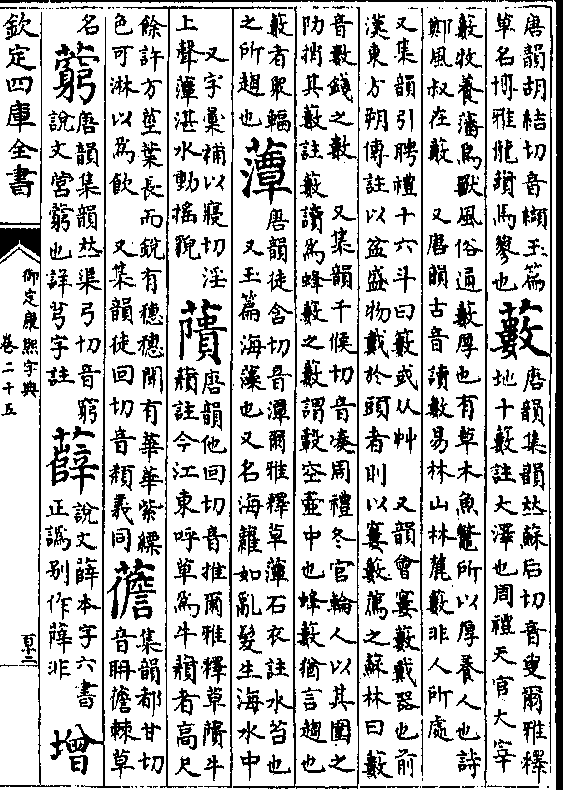 唐韻胡結切音纈玉篇
草名博雅馬蓼也
藪
唐韻集韻𠀤蘇后切音叟爾雅釋
地十藪註大澤也周禮天官大宰
藪牧養蕃鳥獸風俗通藪厚也有草木魚鼈所以厚養人也詩
鄭風叔在藪 又唐韻古音讀數易林山林麓藪非人所處
又集韻引聘禮十六斗曰籔或从艸 又韻會窶藪戴器也前
漢東方朔傳註以盆盛物戴於頭者則以窶藪薦之蘇林曰藪
音數錢之數 又集韻千候切音湊周禮冬官輪人以其圍之
阞捎其藪註藪讀為蜂藪之藪謂轂空壺中也蜂藪猶言趨也
藪者眾輻
之所趨也
藫
唐韻徒含切音潭爾雅釋草藫石衣註水苔也
又玉篇海藻也又名海蘿如亂髮生海水中
又字彙補以寢切淫
上聲藫湛水動搖貌
蘈
唐韻他回切音推爾雅釋草蘈牛
蘈註今江東呼草為牛蘈者高尺
餘許方莖葉長而銳有穗穗間有華華紫縹
色可淋以為飲 又集韻徒回切音頹義同
薝
集韻都甘切
音聃薝棘草
名
藭
唐韻集韻𠀤渠弓切音窮
說文营藭也詳芎字註
薛
說文薛本字六書
正譌别作薛非
增
欽定四庫全書
御定康熙字典
卷二十五